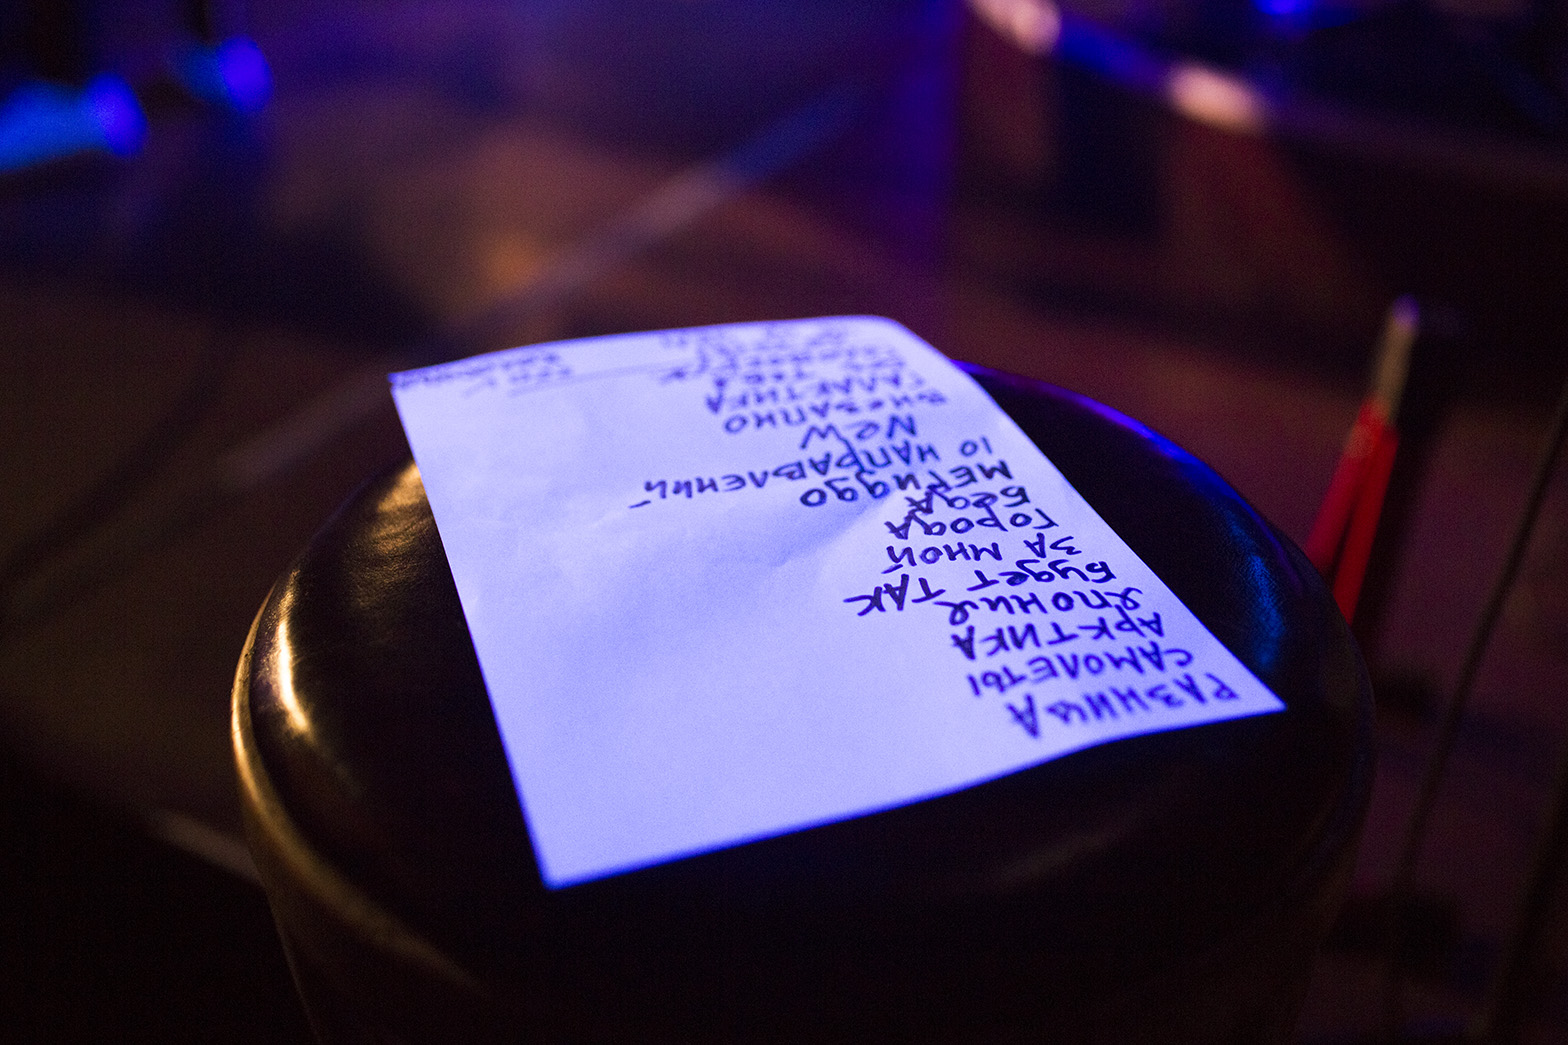 РАЗНИЦА
САМОЛЕТЫ
АРКТИКА
ЯПОНИЯ
БУДЕТ ТАК
ЗА МНОЙ
ГОРОДА
БЕДА
МЕГИДДО
10 НАПРАВЛЕНИЙ
NEW
ВНЕЗАПНО
ГАЛАКТИКА